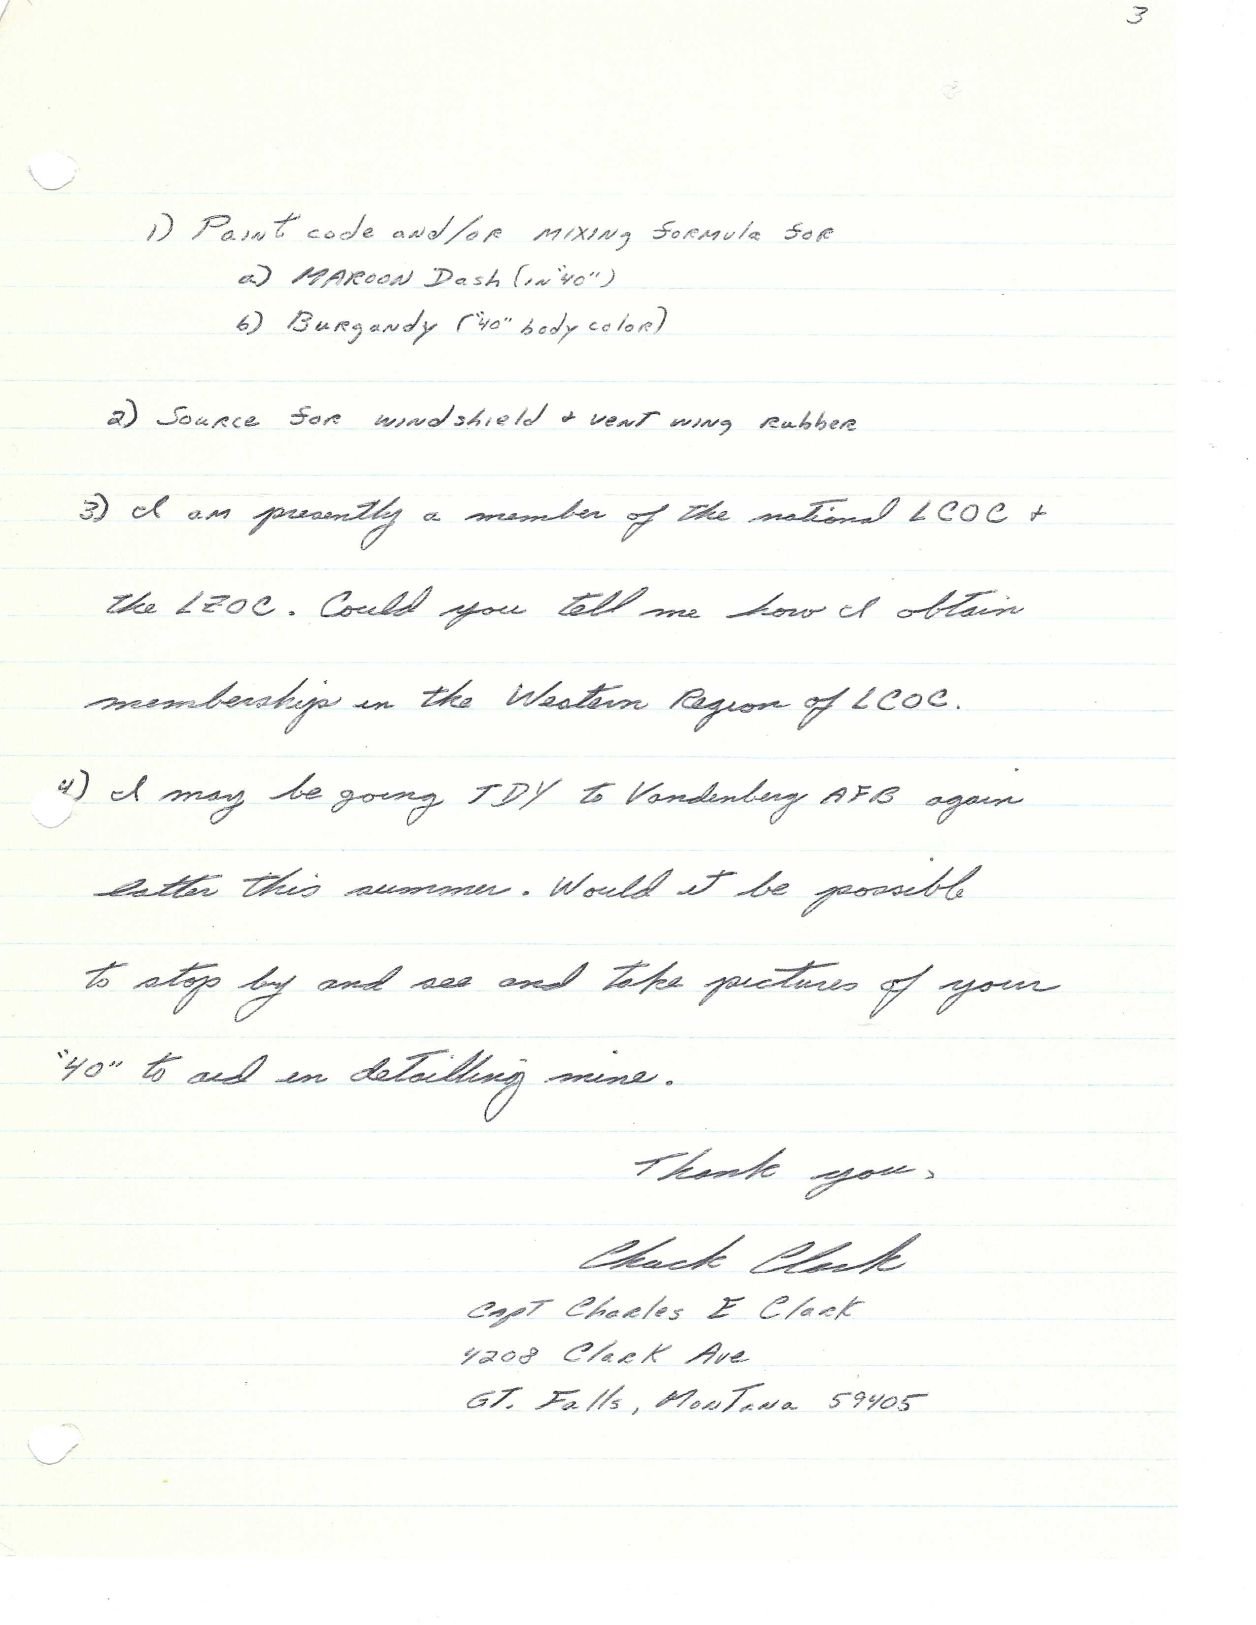 3
1) Paint code and/or mixing formula for
a) MAROON Dash (in "40")
b) Burgandy ("40" body color)
2) Source for windshield + vent wing rubber
3) I am presently a member of the national LCOC +
the LZOC. Could you tell me how I obtain
membership in the Western Region of LCOC.
4) I may be going TDY to Vandenberg AFB again
latter this summer. Would it be possible
to stop by and see and take pictures of your
"40" to aid in detailling mine.
Thank you,
Chuck Clark
Capt Charles E Clark
4208 Clark Ave
GT. Falls, Montana 59405